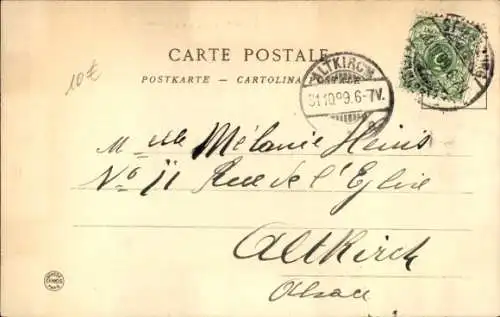 10€
CARTE POSTALE
POSTKARTE – CARTOLINA
ALTKIRCH
31.10.99.6-7V.
Melle Mélanie Heinis
No 11 Rue de l'Eglise
Altkirch
Alsace